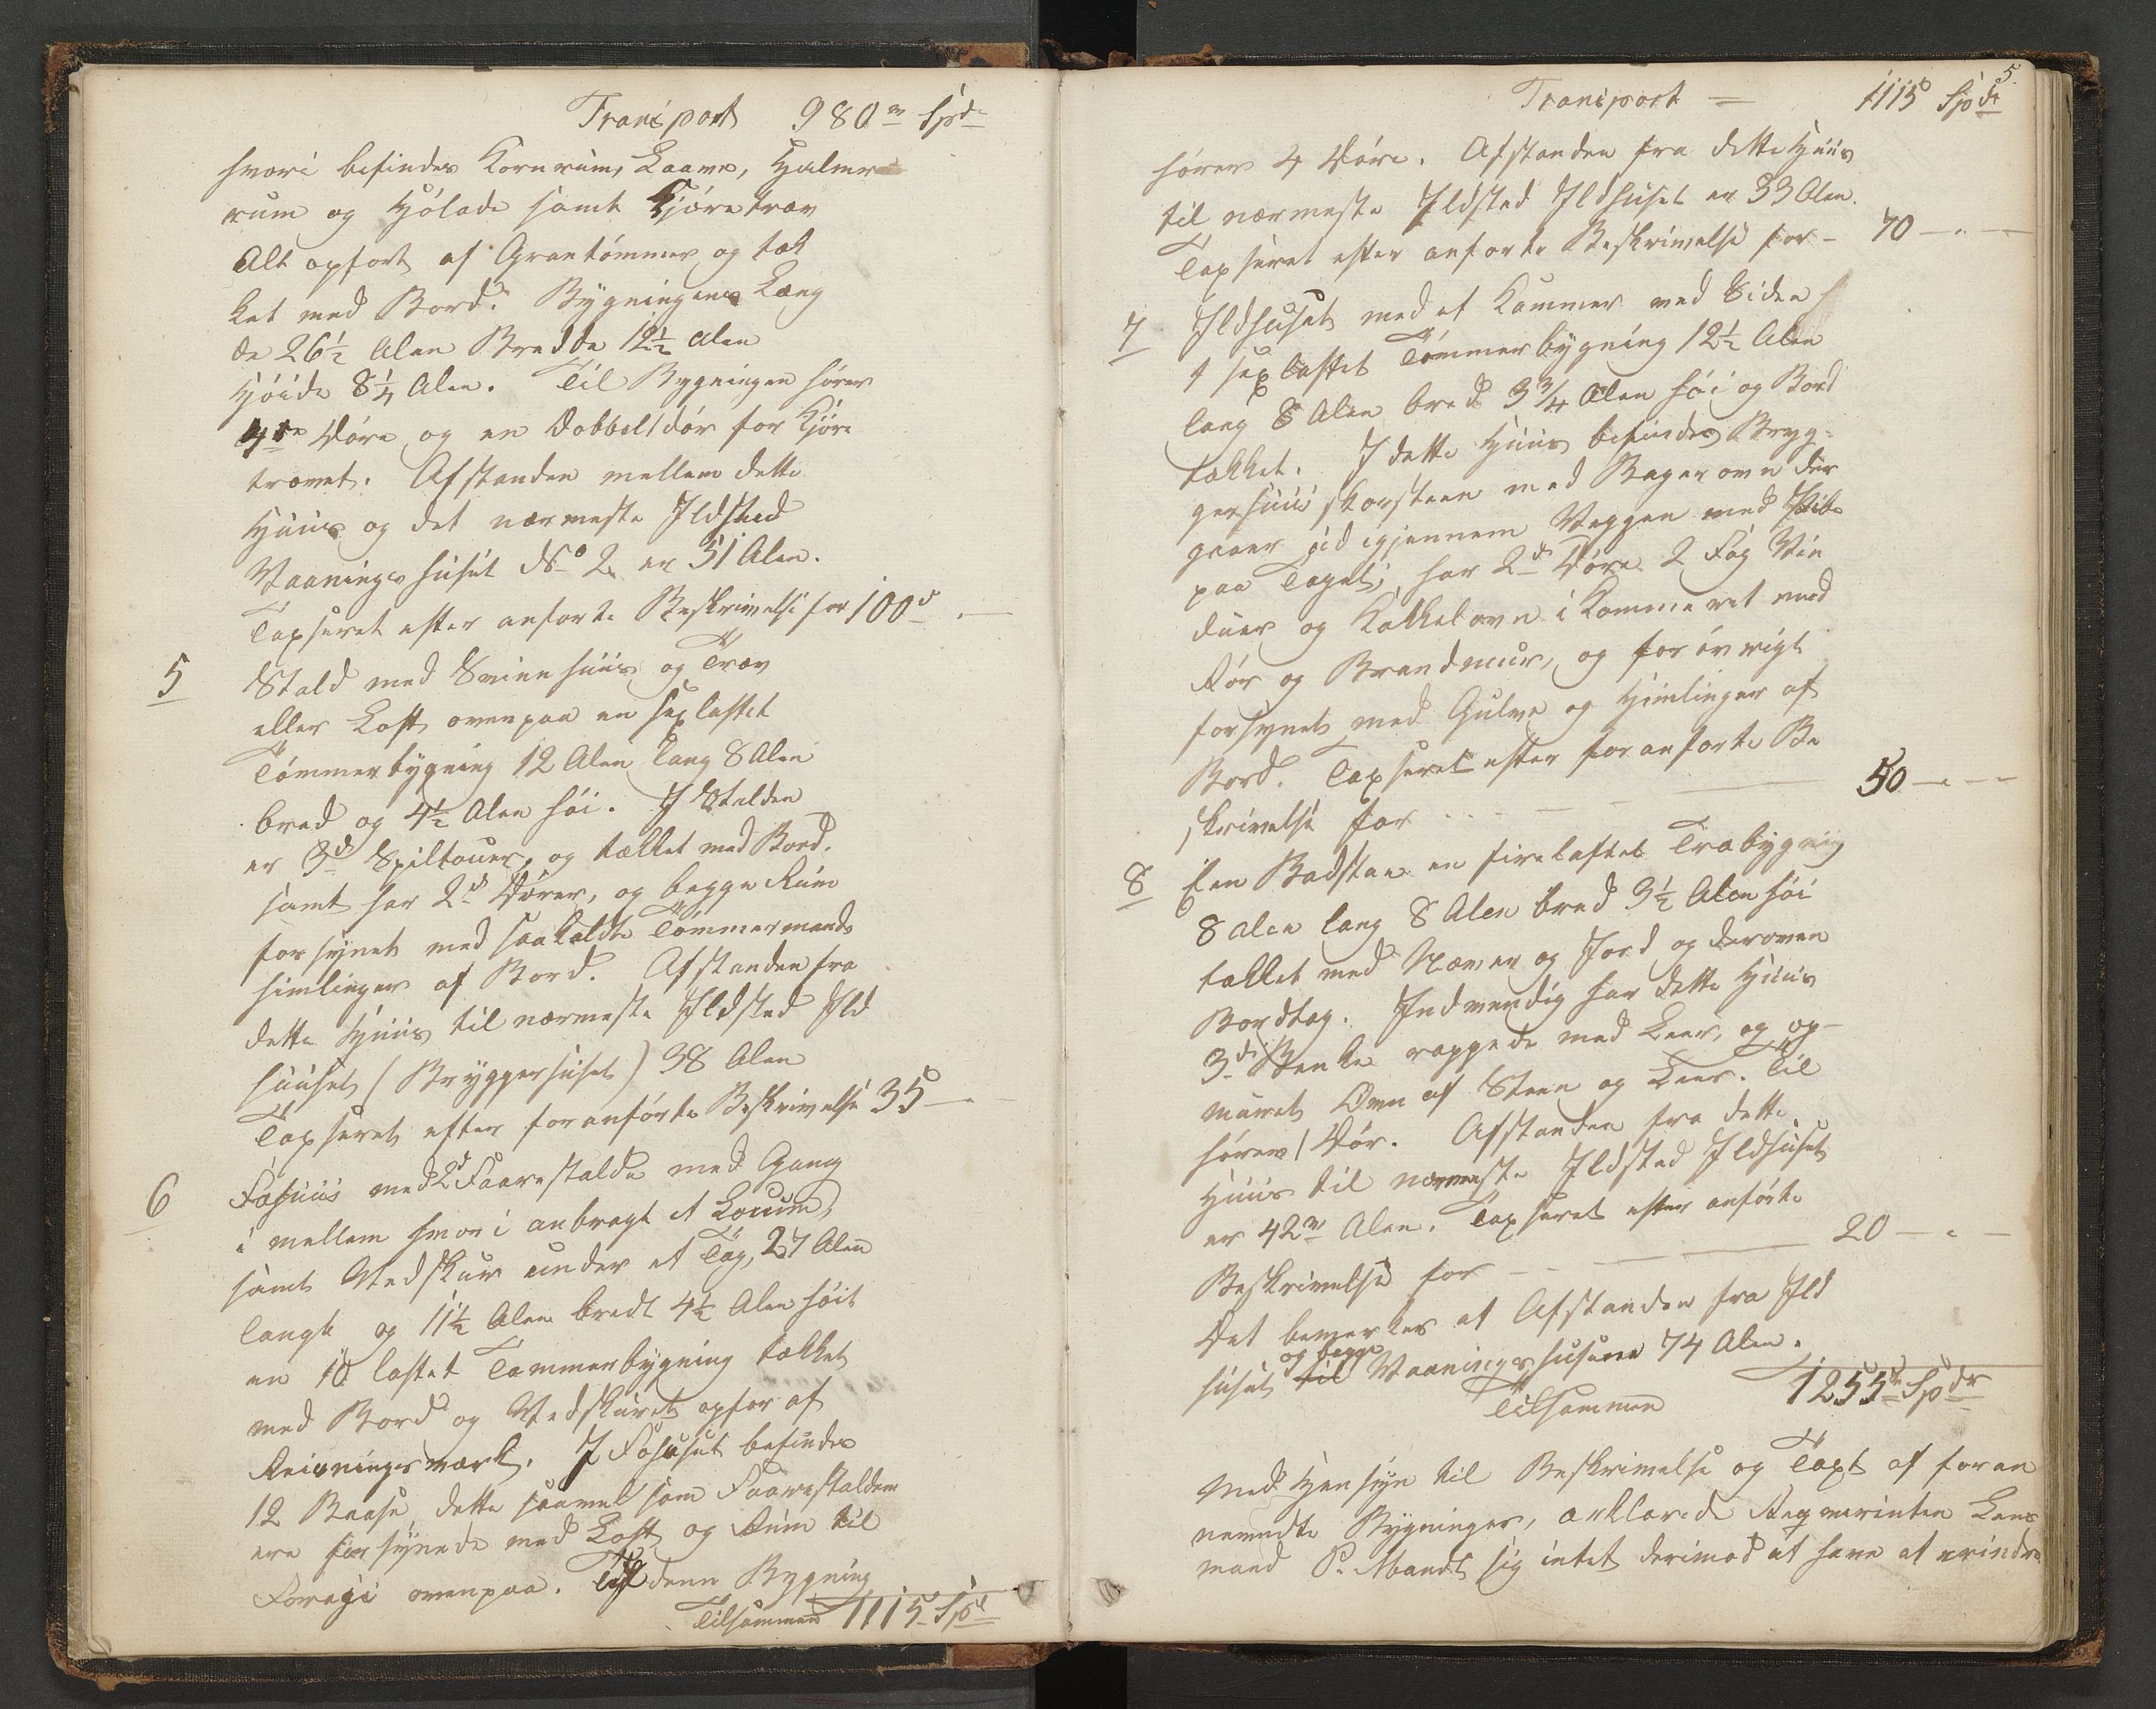 Transport 980 Spd
hvori befindes Kornrum, Laave, Halm
rum og Hölade samt Kjöretrav
Alt opfort af Grantömmer og tæk
ket med Bord. Bygningens Læng
de 26½ Alen Bredde 12½ alen
Höide 8¼ Alen. Til Bygningen hörer
4re Döre og en Dobbeltdör for Kjöre
travet. Afstanden mellem dette
Huus og det nærmeste Ildsted
Vaaningshuset No 2 er 51 Alen.
Taxseret efter anforte Beskrivelse for 100d.—
5 Stald med Sviinhuus og Trav
eller Loft ovenpaa en sexlaftet
Tömmerbygning 12 Alen lang 8 Alen
bred og 4½ Alen höi. I Stalden
er 3d Spiltouer, og tækket med Bord.
samt har 2d Dörer, og begge Rum
forsynet med saakaldte Tömmermands
himlinger af Bord. Afstanden fra
dette Huus til nærmeste Ildsted Ild
huuset (Bryggerhuset) 38 Alen
Taxseret efter foranförte Beskrivelse 35 —
6 Fæhuus med 2d Faarestalde med Gang
i mellem hvori anbragt et Locum,
samt Vedskur under et Tag, 27 Alen
langt og 11½ Alen bredt 4½ Alen höit
en 10 laftet Tømmerbygning tækket
med Bord og Vedskuret opfor af
Reisningsværk. I Fæhuset befindes
12 Baase, dette saavel som Faarestalden
ere forsynede med Loft og Rum til
Foragi ovenpaa. Til denn Bygning
Tilsammen 1115 Spd
5.
Transport — 1115 Spdr
hörer 4 Döre. Afstanden fra dette Huus
til nærmeste Ildsted Ildhuset er 33 Alen.
Taxseret efter anforte Beskrivelse for — 70 — . —
7 Ildhuset med et Kammer ved Siden
1 sexlaftet Tömmerbygning 12½ Alen
lang 8 Alen bred 3¾ Alen höi og Bord
tækket. I dette Huus befindes Bryg-
gerhuus skorsteen med Bagerovn der
gaaer ud igjennem Væggen med Pibe
paa Taget, har 2d Döre 2 Fag Vin
duer og Kakkelovn i Kammeret med
Rör og Brandmuur, og forövrigt
forsynet med Gulve og Himlinger af
Bord. Taxseret efter foranforte Be
skrivelse for . . . — — — 50 — . —
8 Een Badstue en firelaftet Træbygning
8 alen lang 8 Alen bred 3½ Alen höi
tækket med Næver og Jord og derover
Bordtag. Indvendig har dette Huus
3de Bænke rappede med Leer, og op-
muret Ovn af Steen og Leer. Til
hörer 1 Dör. Afstanden fra dette
Huus til nærmeste Ildsted Ildhuset
er 42 Alen. Taxseret efter anförte
Beskrivelse for — — — 20 — . —
Det bemærkes at Afstanden fra Ild
huset til og begge Vaaningshusene 74 Alen.
Tilsammen 1255 Spdr
Med Hensyn til Beskrivelse og Taxt af foran
nevndte Bygninger, erklærede Reqverinten Lens
mand P. Mandt sig intet derimod at have at erindre